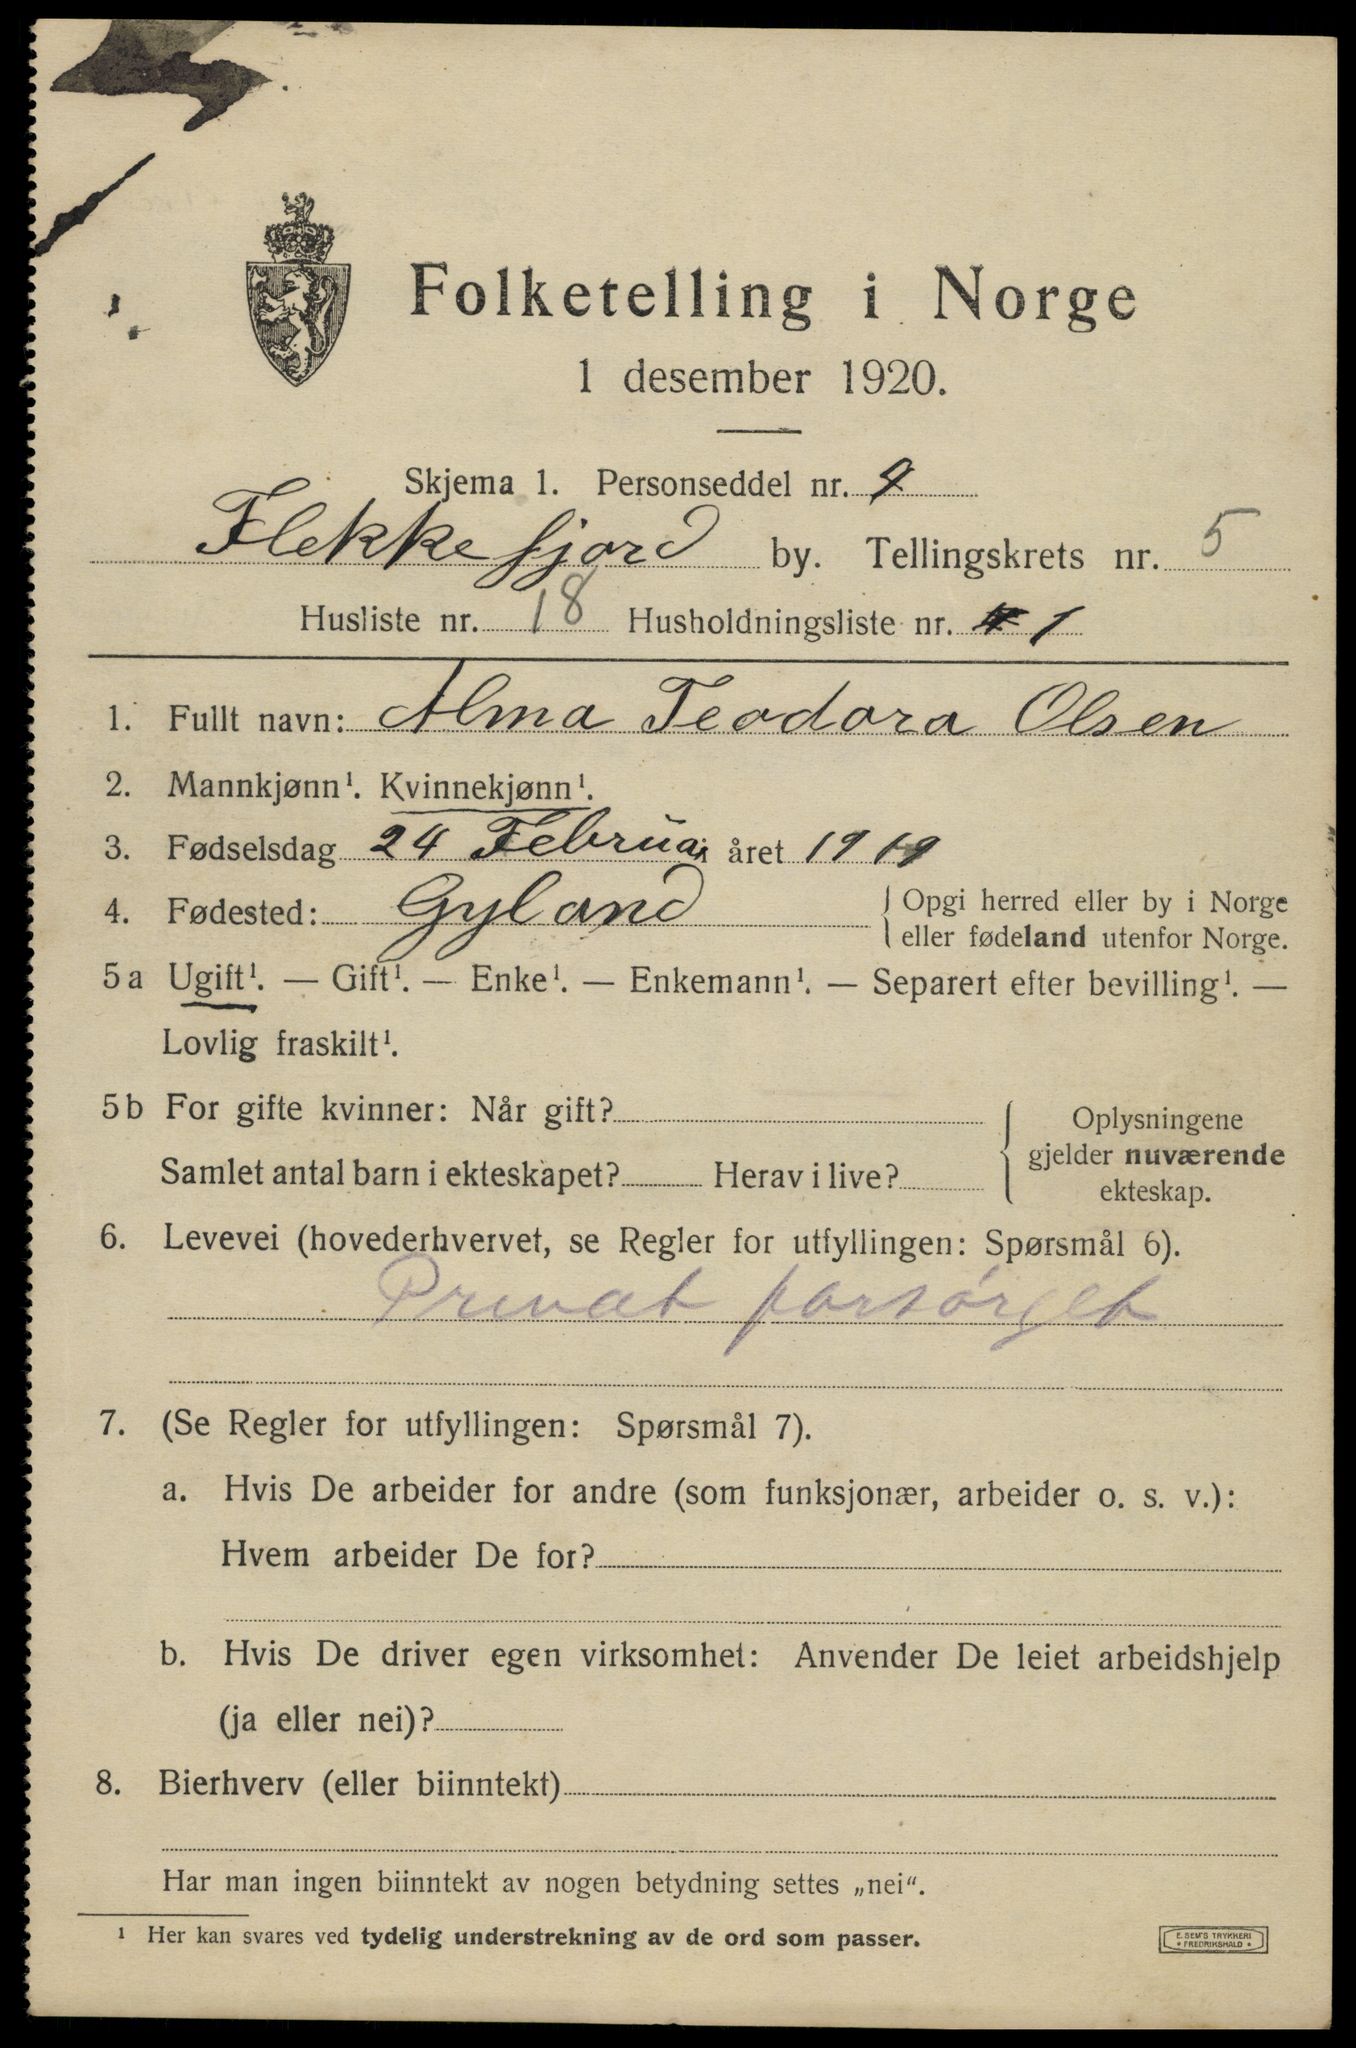 Folketelling i Norge
1 desember 1920.
Skjema 1. Personseddel nr. 9
Flekkefjord by. Tellingskrets nr. 5
Husliste nr. 18 Husholdningsliste nr. 1
1. Fullt navn: Alma Teodora Olsen
2. Mannkjønn¹. Kvinnekjønn¹.
3. Fødselsdag 24 Februar året 1919
4. Fødested: Gyland {Opgi herred eller by i Norge
eller fødeland utenfor Norge.
5 a Ugift¹. — Gift¹. — Enke¹. — Enkemann¹. — Separert efter bevilling¹. —
Lovlig fraskilt¹.
5 b For gifte kvinner: Når gift?
Samlet antal barn i ekteskapet? Herav i live?
{Oplysningene
gjelder nuværende
ekteskap.
6. Levevei (hovederhvervet, se Regler for utfyllingen: Spørsmål 6).
Privat forsørget
7. (Se Regler for utfyllingen: Spørsmål 7).
a. Hvis De arbeider for andre (som funksjonær, arbeider o. s. v.):
Hvem arbeider De for?
b. Hvis De driver egen virksomhet: Anvender De leiet arbeidshjelp
(ja eller nei)?
8. Bierhverv (eller biinntekt)
Har man ingen biinntekt av nogen betydning settes „nei“.
¹ Her kan svares ved tydelig understrekning av de ord som passer.
E. SEM'S TRYKKERI
• FREDRIKSHALD •